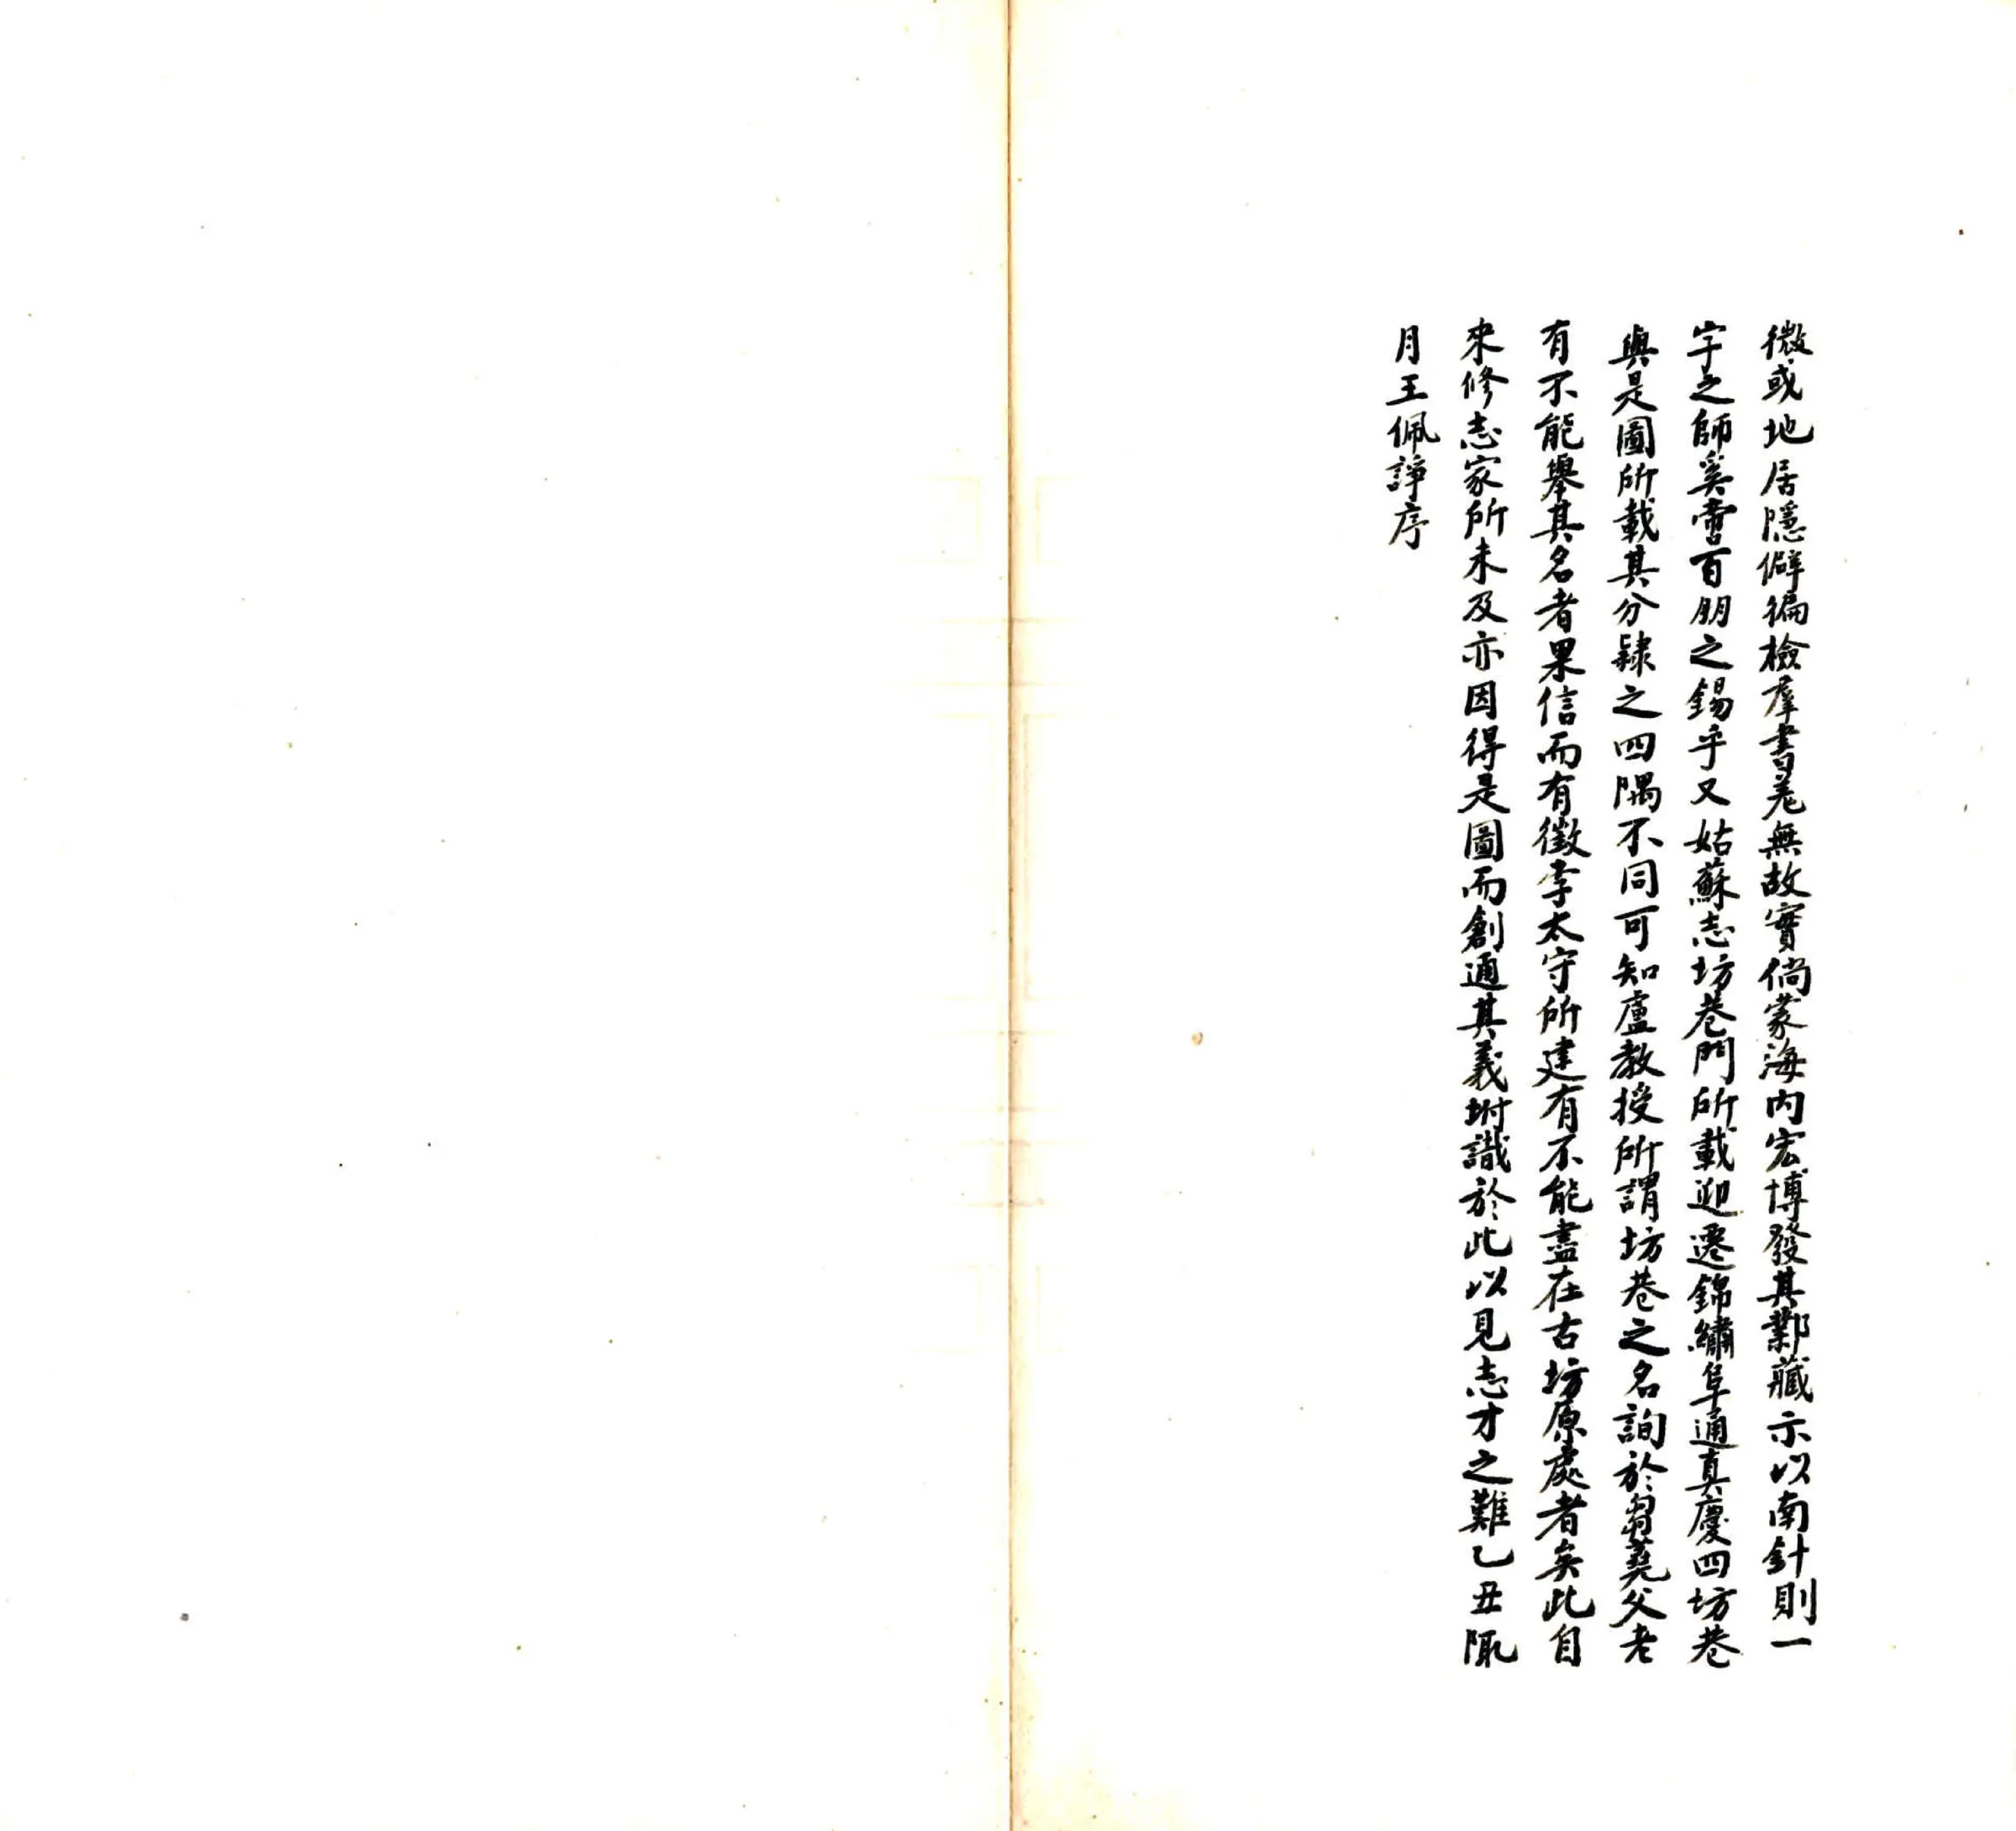 微或地居隱僻徧檢羣書羌無故實倘蒙海内宏博發其鄴藏示以南針則一
字之師奚啻百朋之錫乎又姑蘇志坊巷門所載迎䙴錦繡阜通真慶四坊巷
與是圖所載其分隸之四隅不同可知盧教授所謂坊巷之名詢於芻蕘父老
有不能舉其名者果信而有徵李太守所建有不能盡在古坊原處者矣此自
來修志家所未及亦因得是圖而創通其義坿識於此以見志才之難乙丑陬
月王佩諍序